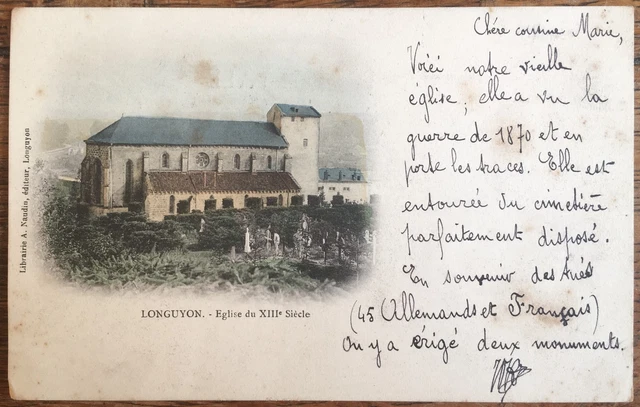 Chére cousine Marie,
Voici notre vieille
église, elle a vu la
guerre de 1870 et en
porte les traces. Elle est
entourée du cimetière
parfaitement disposé.
En souvenir des tués
(45 Allemands et Français)
On y a érigé deux monuments.
LONGUYON. - Eglise du XIIIe Siècle
Librairie A. Naudin, éditeur, Longuyon